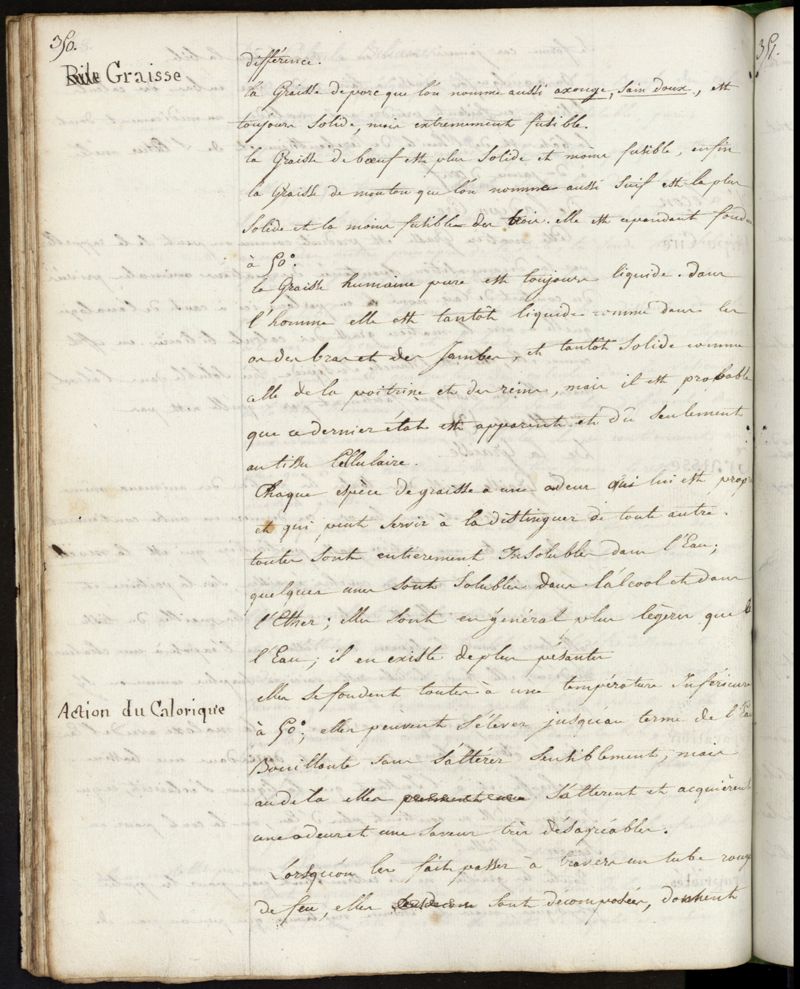 350.
Bile Graisse
différence.
la Graisse de porc que l'on nomme aussi axonge, sain doux, est
toujours solide, mais extremement fusible.
la Graisse de bœuf est plus solide et moins fusible, enfin
la Graisse de mouton que l'on nomme aussi suif est la plus
solide et la moins fusible des trois. elle est cependant fondue
à 50°.
la Graisse humaine pure est toujours liquide. dans
l'homme elle est tantôt liquide comme dans les
os des bras et des Jambes, et tantôt solide comme
celle de la poitrine et des reins, mais il est probable
que ce dernier état est apparent et dû seulement
au tissu Cellulaire.
Chaque espèce de graisse a une odeur qui lui est propre
et qui peut servir à la distinguer de toute autre.
toutes sont entierement Insolubles dans l'Eau;
quelques unes sont solubles dans l'alcool et dans
l'Ether; elles sont en général plus légères que
l'Eau; il en existe de plus pésantes
Action du Calorique
elles se fondent toutes à une température Inférieure
à 50°; elles peuvent s'élever jusqu'au terme de l'Eau
Bouillante sans s'altérer sensiblement, mais
au dela elles s'altèrent et acquièrent
une odeur et une saveur très désagréables.
Lorsqu'on les fait passer à travers un tube rouge
de feu, elles sont décomposées, donnent
351.